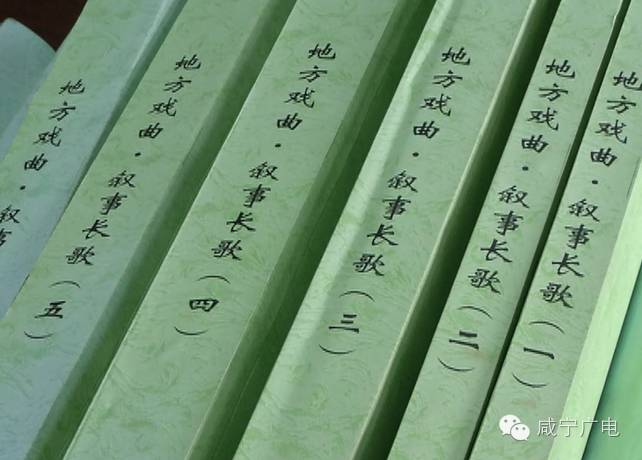 地方戏曲·叙事
地方戏曲·叙事长歌（五）
地方戏曲·叙事长歌（四）
地方戏曲·叙事长歌（三）
地方戏曲·叙事长歌（二）
地方戏曲·叙事长歌（一）
咸宁广电